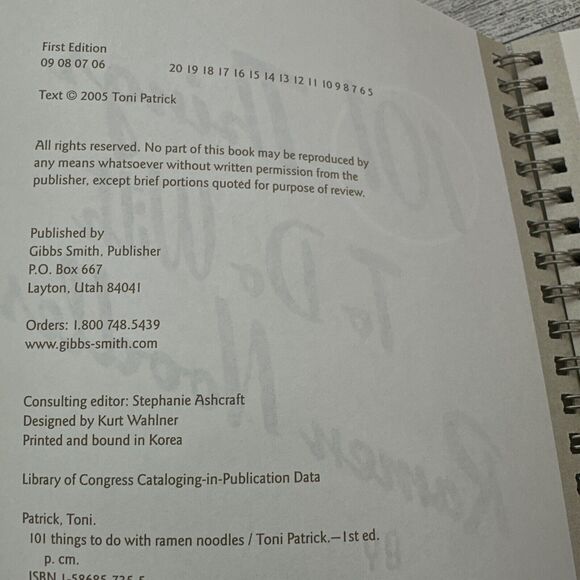 First Edition
09 08 07 06 20 19 18 17 16 15 14 13 12 11 10 9 8 7 6 5
Text © 2005 Toni Patrick
All rights reserved. No part of this book may be reproduced by
any means whatsoever without written permission from the
publisher, except brief portions quoted for purpose of review.
Published by
Gibbs Smith, Publisher
P.O. Box 667
Layton, Utah 84041
Orders: 1.800 748.5439
www.gibbs-smith.com
Consulting editor: Stephanie Ashcraft
Designed by Kurt Wahlner
Printed and bound in Korea
Library of Congress Cataloging-in-Publication Data
Patrick, Toni.
101 things to do with ramen noodles / Toni Patrick.—1st ed.
p. cm.
ISBN 1-58685-735-5
101 Things
To Do With
Ramen Noodles
BY